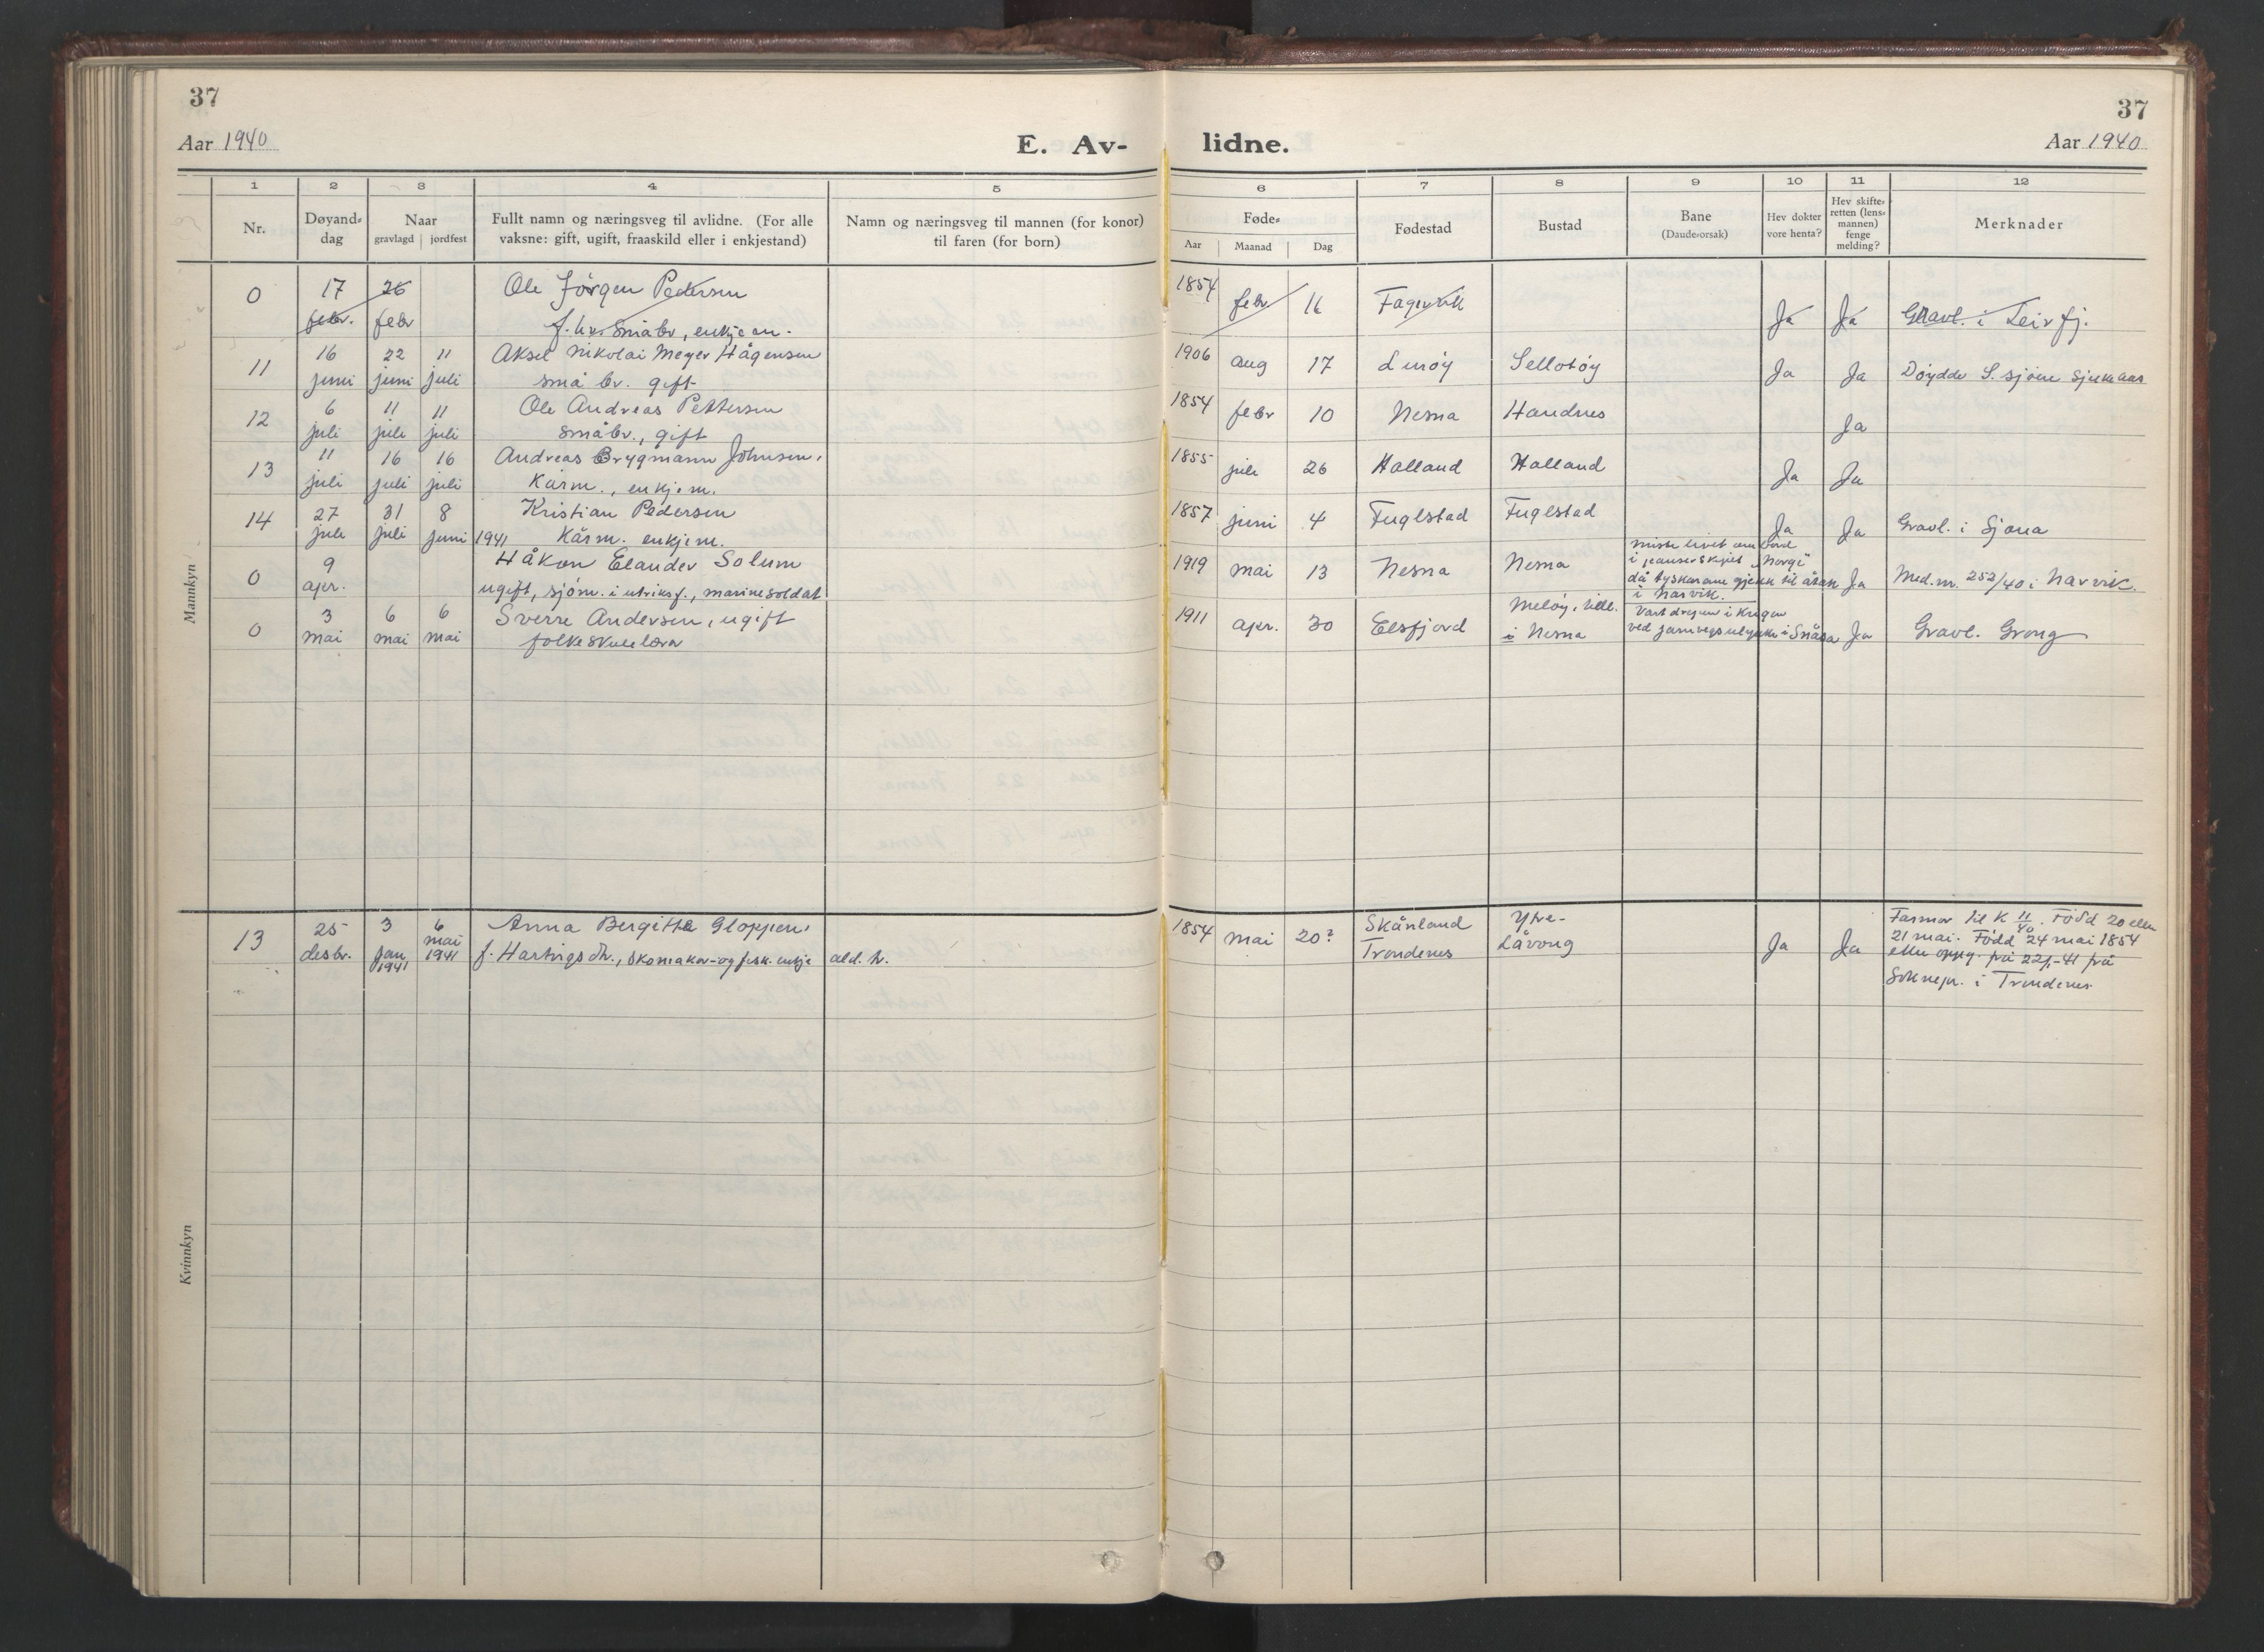 37
37
Aar 1940
E. Av-
lidne.
Aar 1940
1
2
3
4
5
6
7
8
9
10
11
12
Nr.
Døyand-
dag
Naar
gravlagd | jordfest
Fullt namn og næringsveg til avlidne. (For alle
vaksne: gift, ugift, fraaskild eller i enkjestand)
Namn og næringsveg til mannen (for konor)
til faren (for born)
Føde-
Aar
Maanad
Dag
Fødestad
Bustad
Bane
(Daude-orsak)
Hev dokter
vore henta?
Hev skifte-
retten (lens-
mannen)
fenge
melding?
Merknader
Mannkyn
0 17 26 Ole Jörgen Pedersen 1854 febr 16 Fagervik Ja Ja Gravl. i Leirfj.
febr. febr f. hv. småbr, enkjem.
11 16 22 11 Aksel Nikolai Meyer Hågensen 1906 aug 17 Luröy Sellotöy Ja Ja Döydde S. sjöen
juni juni juli små br. gift
12 6 11 11 Ole Andreas Pettersen 1854 febr 10 Nesna Handnes Ja
juli juli juli småbr., gift
13 11 16 16 Andreas Brygmann Johnsen, 1855 juli 26 Halland Halland Ja Ja
juli juli juli Kårm., enkjem.
14 27 31 8 Kristian Pedersen 1857 juni 4 Fuglstad Fuglstad Ja Ja Gravl. i Sjona
juli juli juni 1941 Kårm. enkjem.
0 9 Håkon Elander Solum 1919 mai 13 Nesna Nesna miste livet om bord
i panserskipet "Norge"
då tyskarane gjekk til åtak
i Narvik. Ja Med. nr. 252/40 i Narvik.
apr. ugift, sjöm. i utriksf., marinesoldat
0 3 6 6 Sverre Andersen, ugift 1911 apr. 30 Elsfjord Melöy,
i Nesna Vart drepen i Krigen
ved jarnvegsulykke i Snåsa Ja Gravl. Grong
mai mai mai folkeskulelærar
Kvinnkyn
13 25 3 6 Anna Bergitte Gloppen, 1854 mai 20? Skånland Ytre-
desbr. jan. mai f. Hartvigsdtr., skomakar- og fisk. enkje ald. tr. Trondenes Låvong Ja Ja
1941 1941
Farmor til K 11/40. Född 20 eller
21 mai. Född 24 mai 1854
etter oppg. frå 22/1-41 frå
Soknepr. i Trondenes.